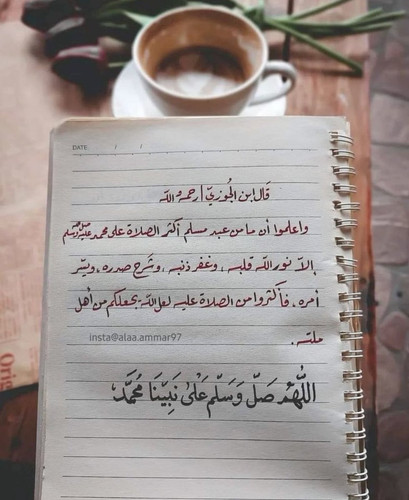 DATE: / /
قال ابن الجوزيّ | رحمه الله
واعلموا أن ما من عبد مسلم أكثر الصلاة على محمد ﷺ
إلا نور الله قلبه ، وغفر ذنبه ، وشرح صدره ، ويسّر
أمره ، فأكثروا من الصلاة عليه لعل الله يجعلكم من أهل
ملته .
insta@alaa.ammar97
اللَّهُمَّ صَلِّ وَسَلِّم عَلَىٰ نَبِيِّنَا مُحَمَّد